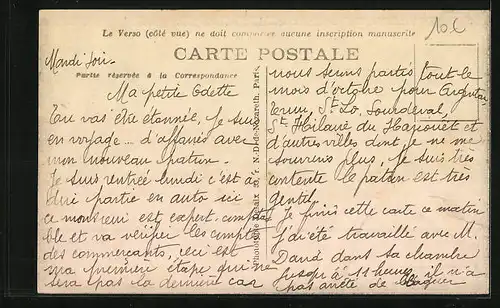 Le Verso (côté vue) ne doit comporter aucune inscription manuscrite
10 €
CARTE POSTALE
Mardi soir.
Partie réservée à la Correspondance
Ma petite Odette
Tu vas être étonnée, Je suis
en voyage... d'affaires avec
mon nouveau patron.
Je suis rentrée lundi c'est à
dui partie en auto ici
ce monsieur est expert comptable
ble et va vérifier les comptes
des commerçants, ceci est
sera première étape qui ne
sera pas la dernière car
N.-D.-de-Nazareth, Paris
nous serons partis tout le
mois d'octobre pour Argentan
St Lo, Sourdeval,
St Hilaire du Harcouët et
d'autres villes dont je ne me
souviens plus, Je suis très
contente le patron est très
gentil
Je finis cette carte ce matin
J'ai été travaillé avec M.
dans sa chambre
jusqu'à 11 heures il n'a
pas arrêté de blaguer